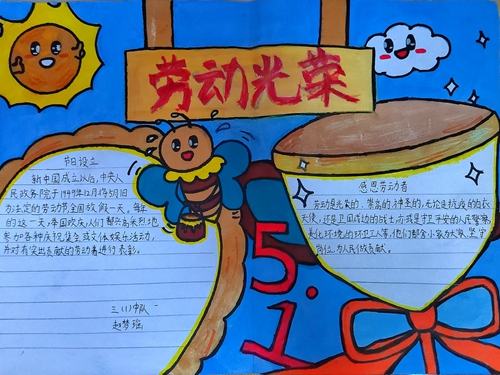 劳动光荣
节日设立
新中国成立以后,中央人
民政务院于1949年12月将5月1日
办法定的劳动节,全国放假一天,每年
的这一天,举国欢庆,人们都兴高采烈地
参加各种庆祝集会或文体娱乐活动,
并对有突出贡献的劳动者进行表彰。
三(1)中队
赵梦瑶
5.1
感恩劳动者
劳动是光荣的、崇高的、神圣的,无论是抗疫的白衣
天使,还是卫国戍边的战士,亦或是守卫平安的人民警察,
美化环境的环卫工人等,他们都舍小家为大家,坚守
岗位,为人民做贡献。